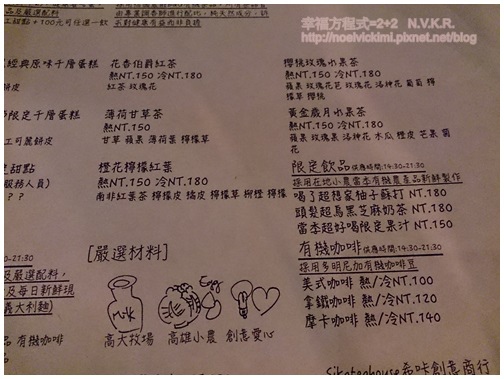 幸福方程式=2+2 N.V.K.R.
http://noelvickimi.pixnet.net/blog
及嚴選配料
甜點 +100元可任選一款
經典原味千層蛋糕
餅皮
限定千層蛋糕
工可麗餅皮
甜點
服務人員)
? ?
-21:30
及嚴選配料,
及每日新鮮現
義大利麵)
有機咖啡
品
花香伯爵紅茶
熱NT.150 冷NT.180
紅茶 玫瑰花
薄荷甘草茶
熱NT.150
甘草 蘋果 薄荷葉 檸檬草
橙花檸檬紅葉
熱NT.150 冷NT.180
南非紅葉茶 檸檬皮 橘皮 檸檬草 柳橙 檸檬
[嚴選材料]
N.K
Egg
高大牧場 高雄小農 創意愛心
櫻桃玫瑰水果茶
熱NT.150 冷NT.180
蘋果 玫瑰花芭 玫瑰花 洛神花 葡萄 檸
檬草 櫻桃
黃金歲月水果茶
熱NT.150 冷NT.180
蘋果 玫瑰果 洛神花 木瓜 橙皮 芒果 菊
花
限定飲品 供應時間:14:30-21:30
採用在地小農當季有機農產品新鮮製作
喝了超想家柚子蘇打 NT.180
頭髮超烏黑芝麻奶茶 NT.180
當季超好喝限定果汁 NT.150
有機咖啡 供應時間:14:30-21:30
採用多明尼加有機咖啡豆
美式咖啡 熱/冷NT.100
拿鐵咖啡 熱/冷NT.120
摩卡咖啡 熱/冷NT.140
希咔創意商行